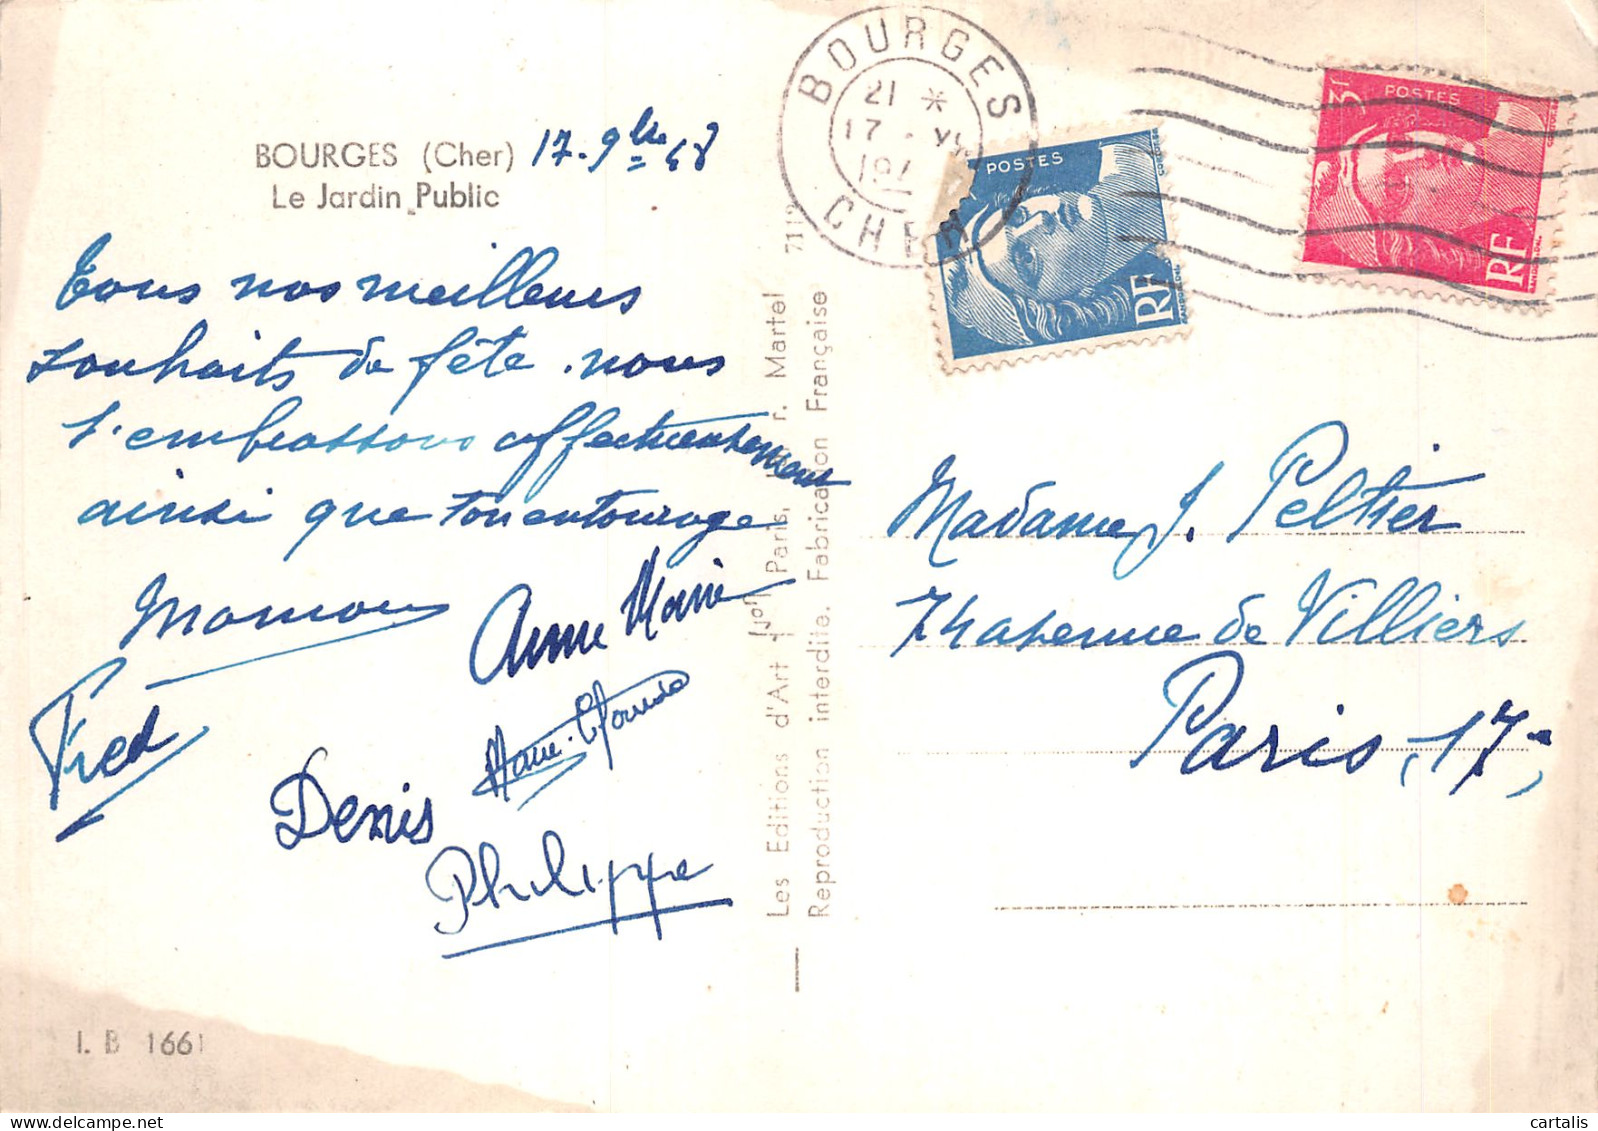 BOURGES (Cher) 17-9bre 48
Le Jardin Public
Tous nos meilleurs
souhaits de fête. nous
t'embrassons affectueusement
ainsi que ton entourage
Maman
Anne Marie
Fred
Marie-Claude
Denis
Philippe
I. B 1661
Les Editions d'Art "Yvon" Paris, r. Martel
Reproduction interdite. Fabrication Française
711
BOURGES
21 *
17 - XI
194
CHER
POSTES
RF
3F
POSTES
RF
Madame J. Peltier
74 avenue de Villiers
Paris, 17e
cartalis